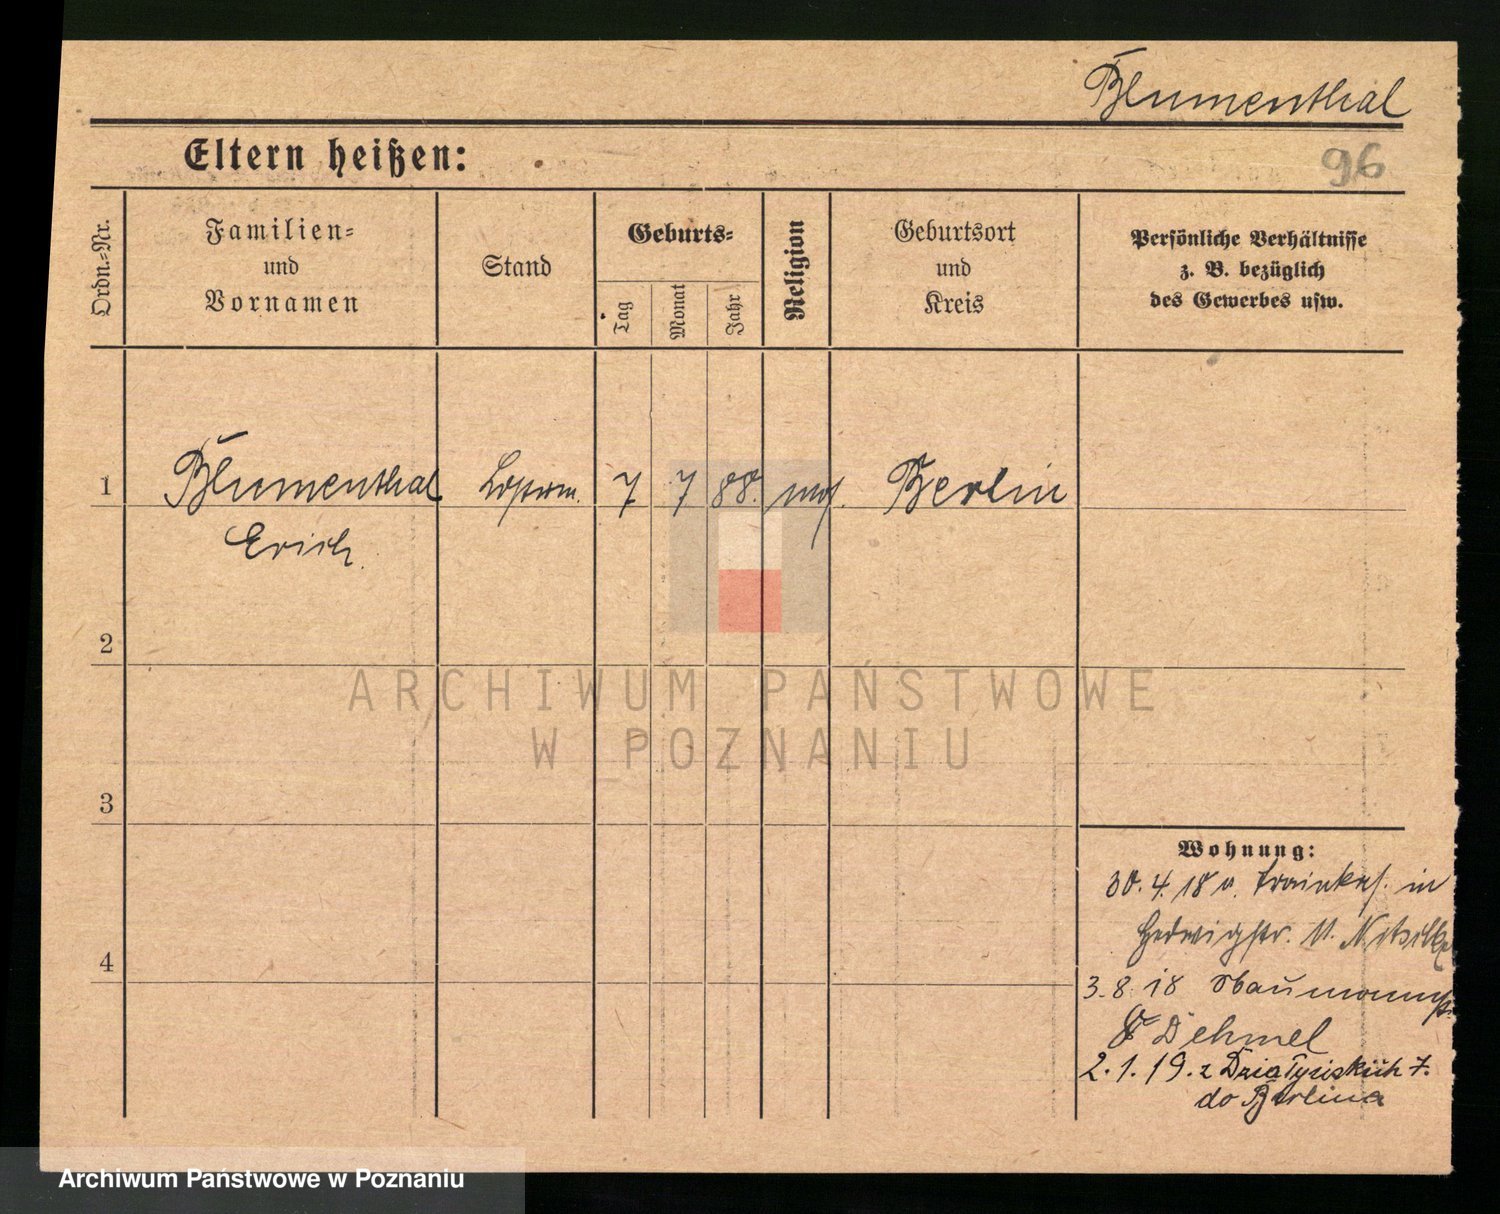 Blumenthal
Eltern heißen:
96
Ordn.-Nr.
Familien-
und
Vornamen
Stand
Geburts-
Tag
Monat
Jahr
Religion
Geburtsort
und
Kreis
Persönliche Verhältnisse
z. B. bezüglich
des Gewerbes usw.
1 Blumenthal 7 7 88. mos. Berlin
Erich
2
3
4
Wohnung:
30.4.18 v. in
Hedwigstr. 11.
3.8.18
8 Dehmel
2.1.19. z Działyńskich 7.
do Berlina
ARCHIWUM PAŃSTWOWE
W POZNANIU
Archiwum Państwowe w Poznaniu